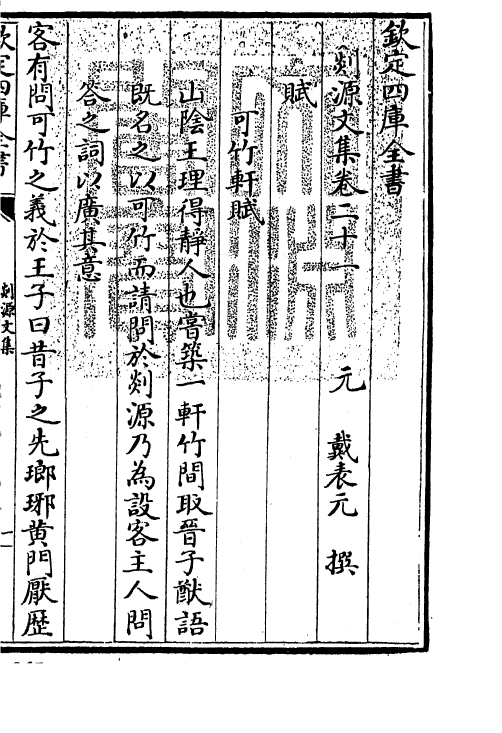 欽定四庫全書
剡源文集卷二十一
元 戴表元 撰
賦
可竹軒賦
山陰王理得靜人也嘗築一軒竹間取晉子猷語
既名之以可竹而請閧於剡源乃為設客主人問
答之詞以廣其意
客有問可竹之義於王子曰昔子之先瑯琊黄門厭歴
欽定四庫全書
剡源文集
一